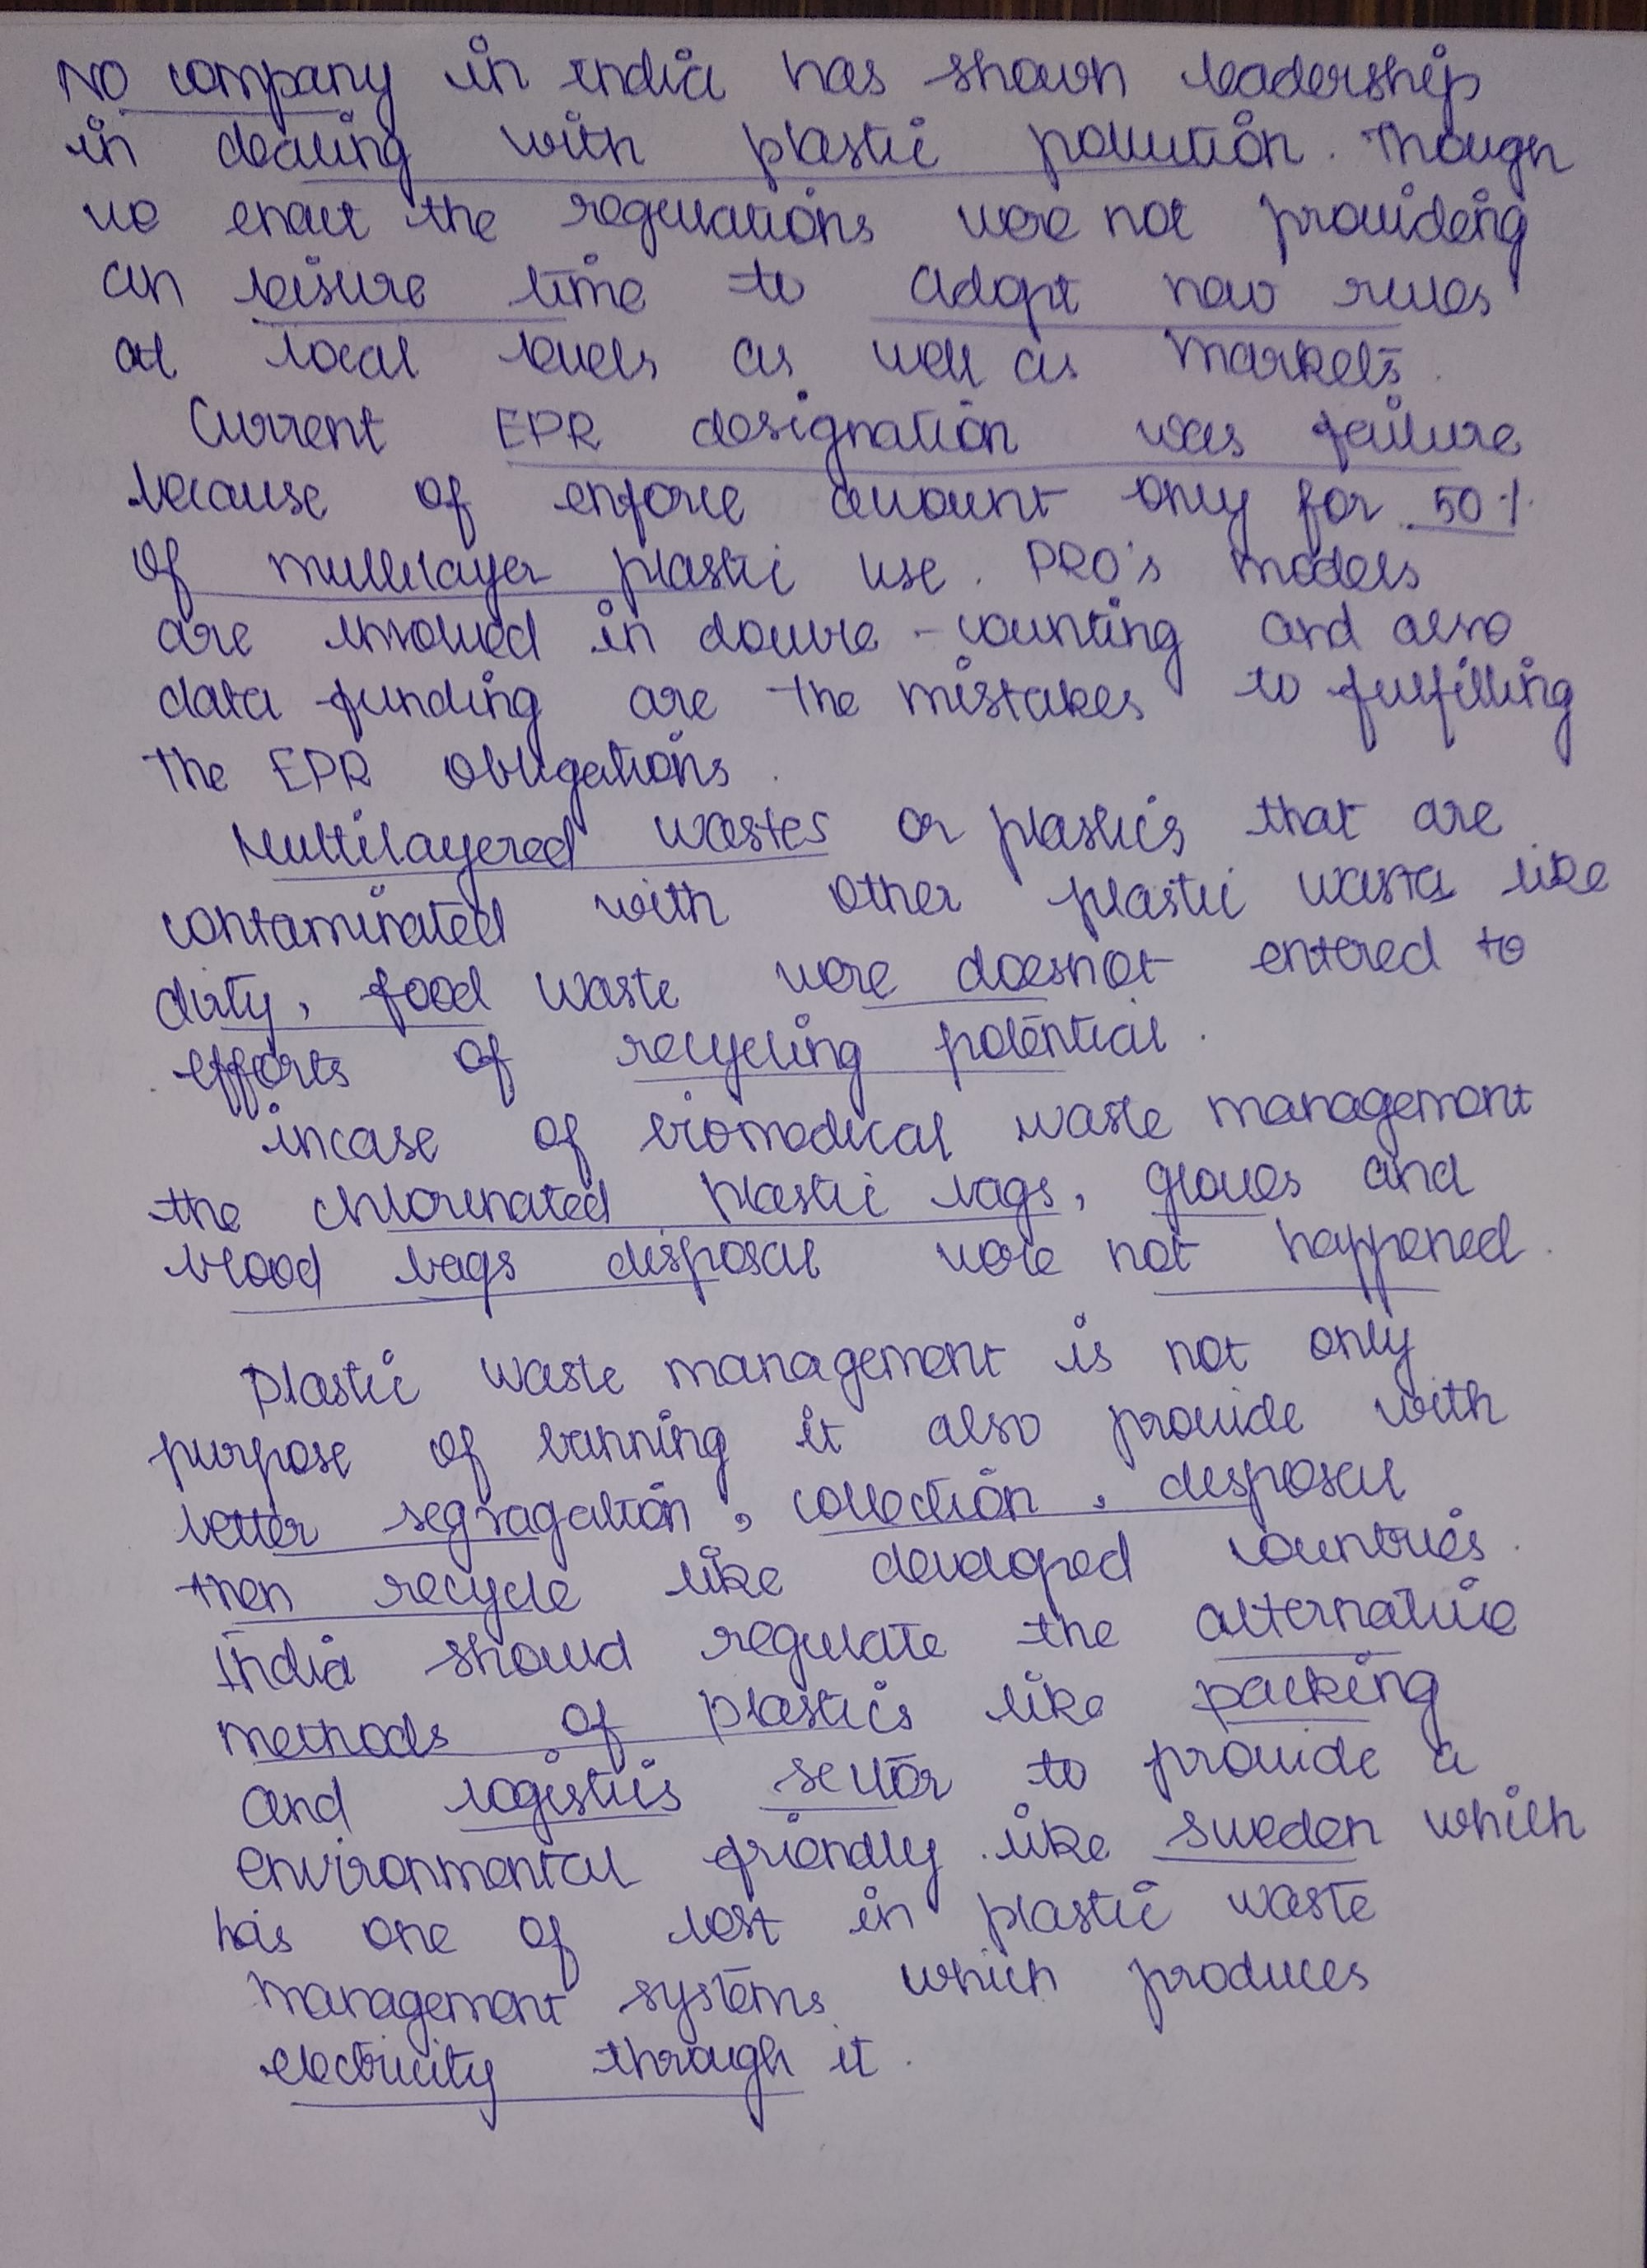 No company in india has shown leadership
in dealing with plastic pollution. Though
we enact the regulations were not provideing
an leisure time to adopt new rules
at local levels as well as Markets.
Current EPR designation was failure
because of enforce amount only for 50%
of multilayer plastic use. PRO's models
are involved in double-counting and also
data funding are the mistakes to fulfilling
the EPR obligations.
Multilayered wastes or plastics that are
contaminated with other plastic waste like
dirty, food waste were doesnot entered to
efforts of recycling potential.
incase of biomedical waste management
the chlorinated plastic bags, gloves and
blood bags disposal were not happened.
Plastic waste management is not only
purpose of banning it also provide with
better segragation, collection, disposal
then recycle like developed countries.
India should regulate the alternative
methods of plastics like packing
and logistics sector to provide a
environmental friendly like sweden which
has one of best in plastic waste
management systems which produces
electricity through it.